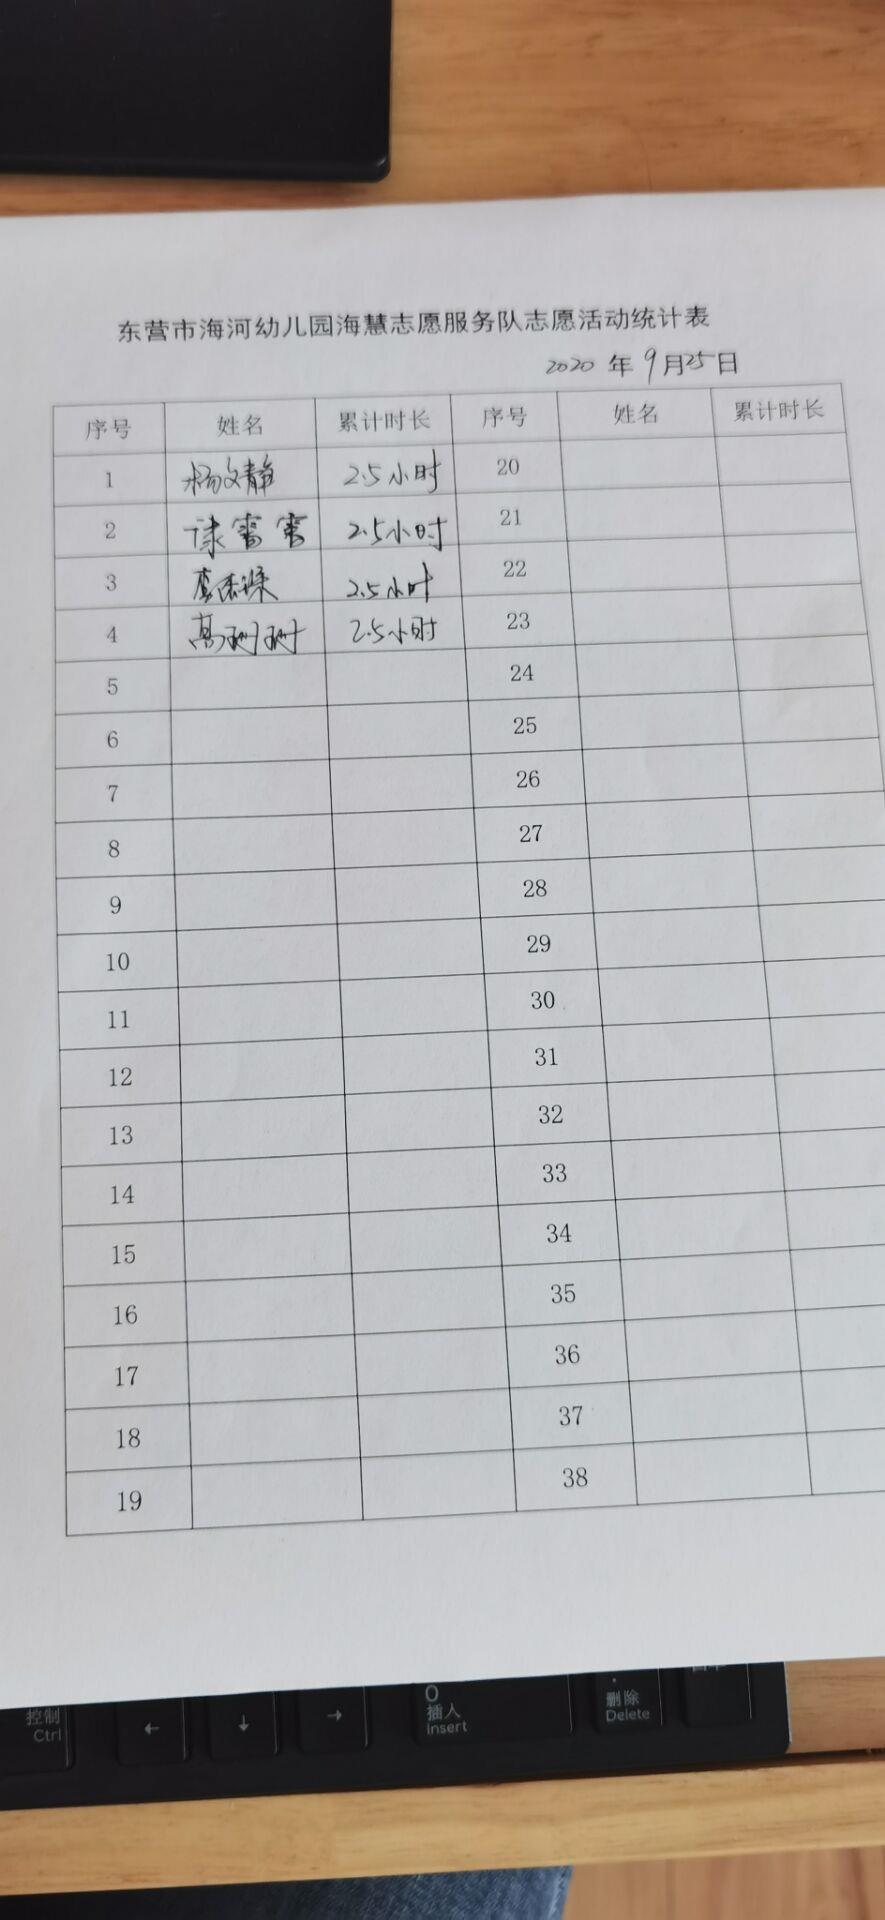 东营市海河幼儿园海慧志愿服务队志愿活动统计表
2020 年 9月25日
序号 姓名 累计时长 序号 姓名 累计时长
1 杨文静 2.5小时 20
2 雷雷 2.5小时 21
3 2.5小时 22
4 高珊珊 2.5小时 23
5 24
6 25
7 26
8 27
9 28
10 29
11 30
12 31
13 32
14 33
15 34
16 35
17 36
18 37
19 38
控制 Ctrl ← ↓ → 0 插入 Insert . 删除 Delete